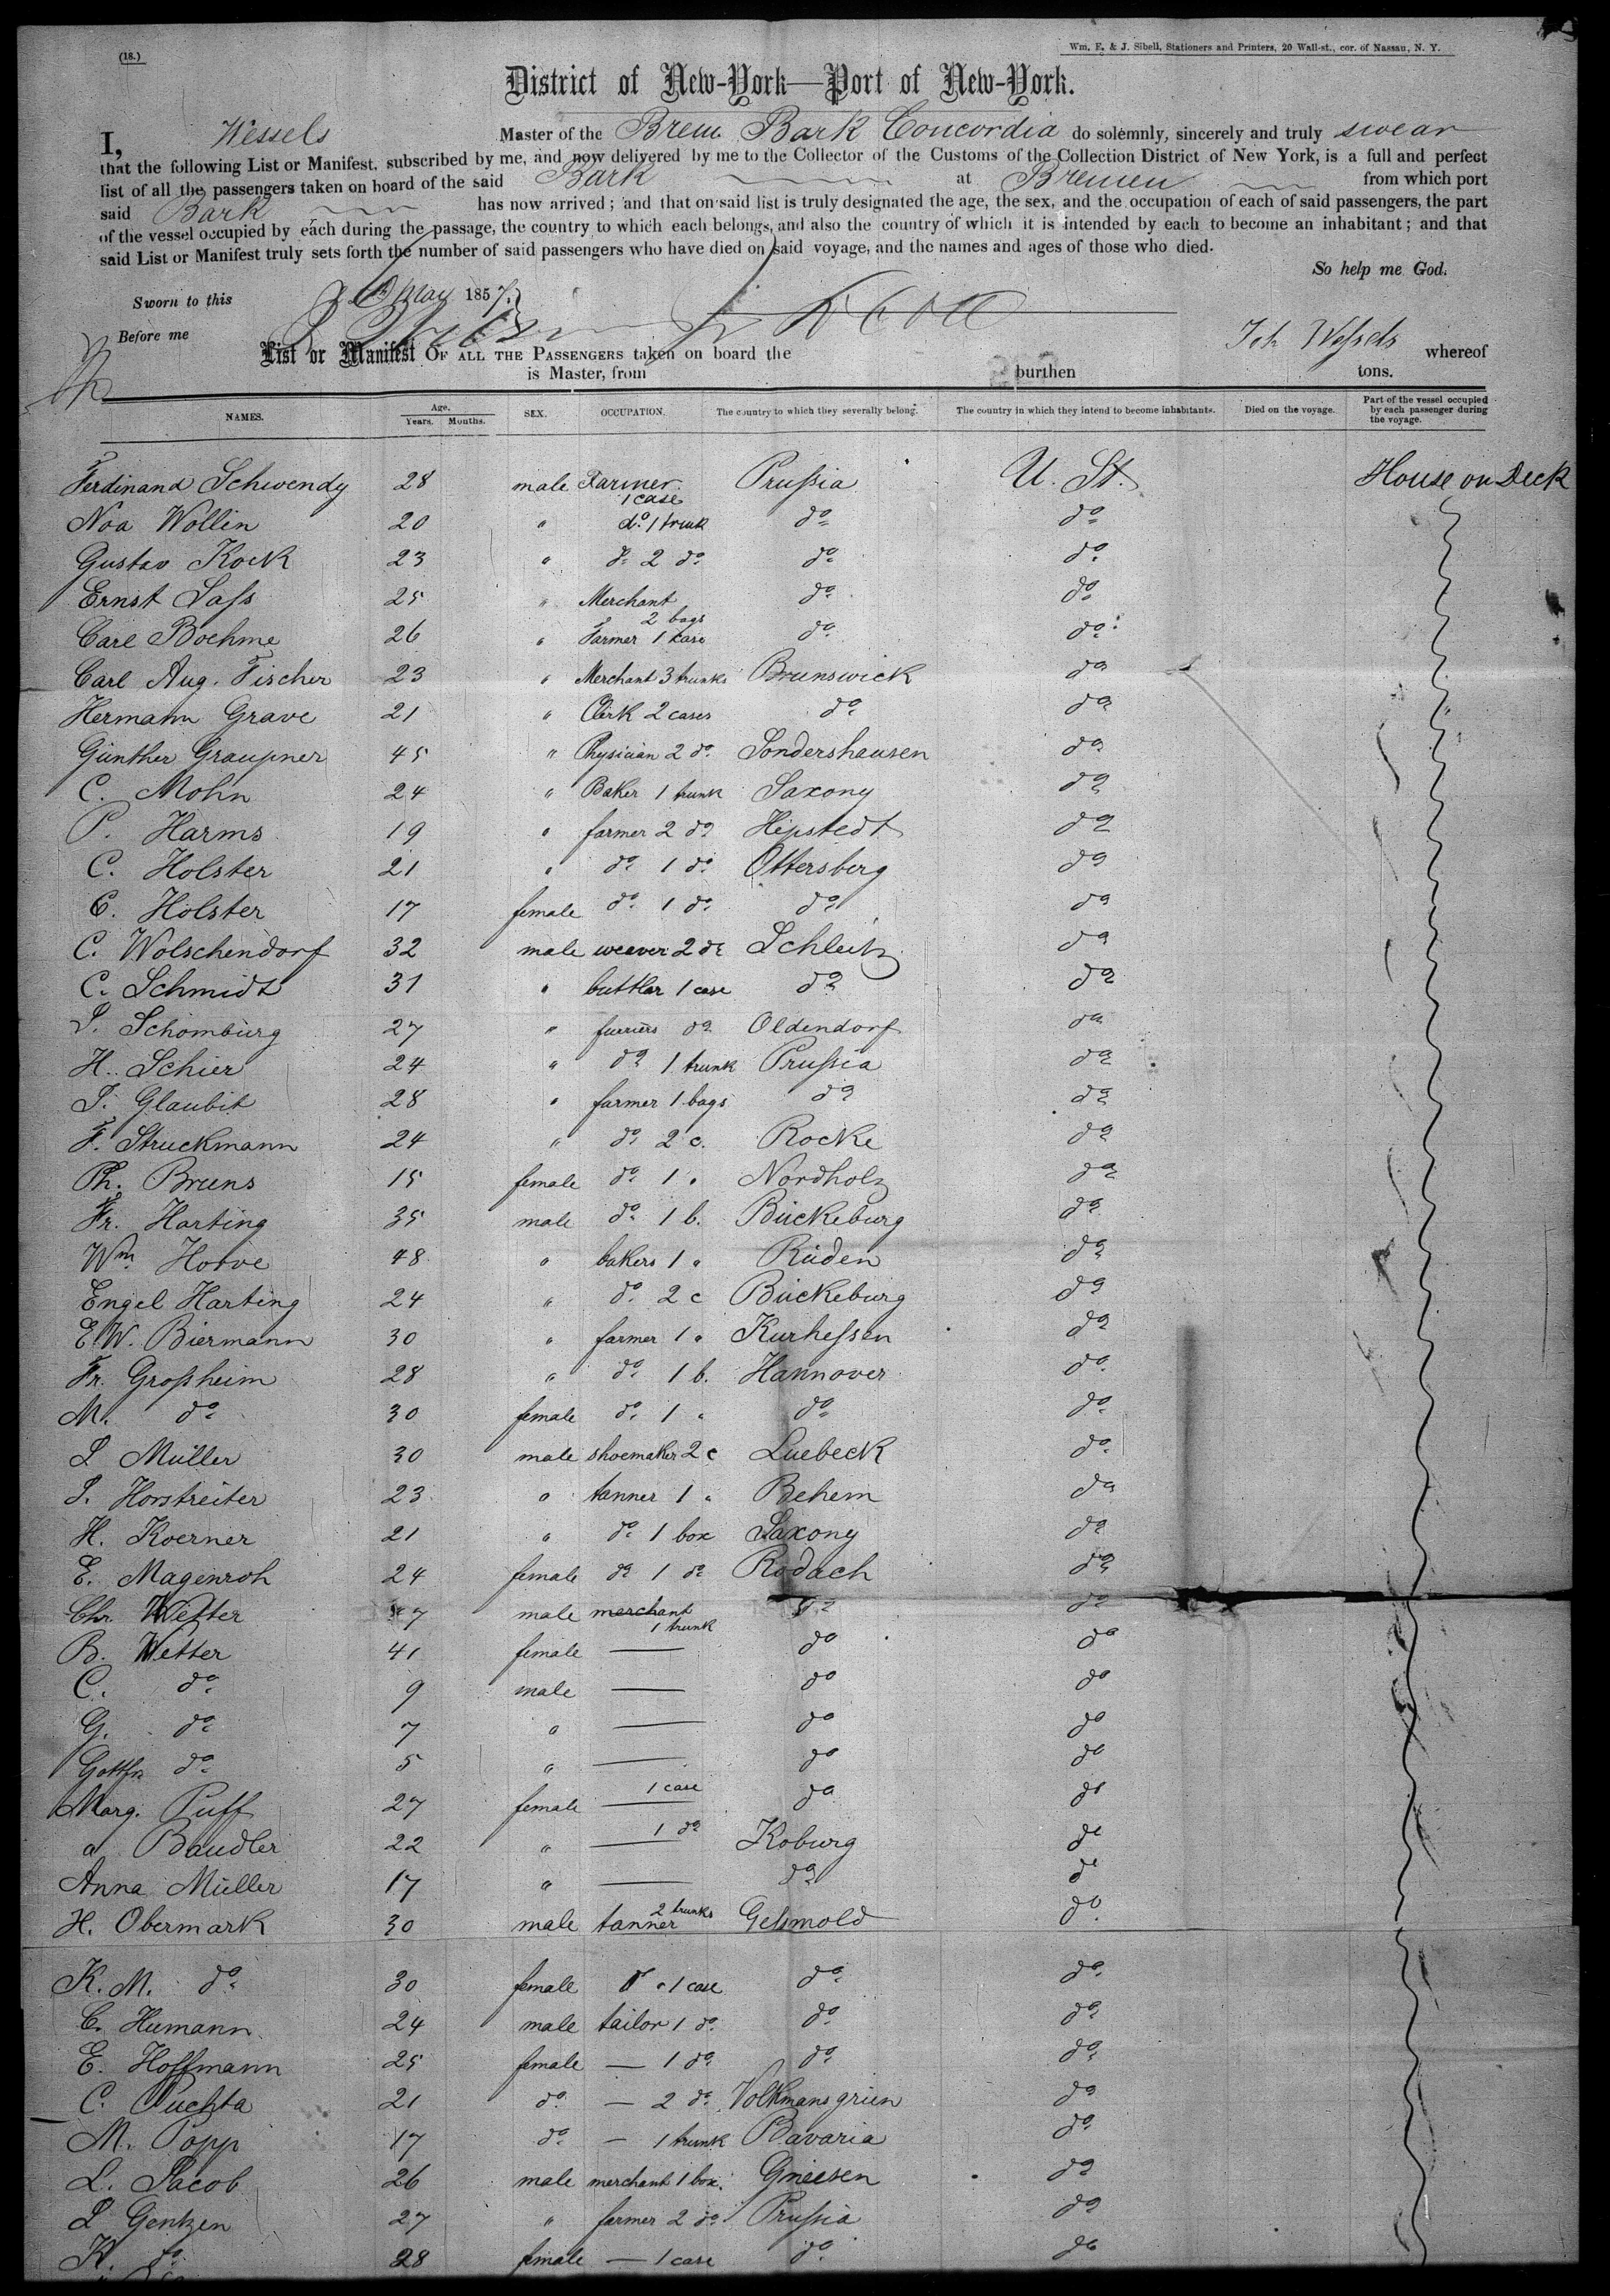 (18.)
Wm. E. & J. Sibell, Stationers and Printers, 20 Wall-st., cor. of Nassau, N. Y.
District of New-York—Port of New-York.
I, Wessels Master of the Brem. Bark Concordia do solemnly, sincerely and truly swear
that the following List or Manifest, subscribed by me, and now delivered by me to the Collector of the Customs of the Collection District of New York, is a full and perfect
list of all the passengers taken on board of the said Bark at Bremen from which port
said Bark has now arrived; and that on said list is truly designated the age, the sex, and the occupation of each of said passengers, the part
of the vessel occupied by each during the passage, the country to which each belongs, and also the country of which it is intended by each to become an inhabitant; and that
said List or Manifest truly sets forth the number of said passengers who have died on said voyage, and the names and ages of those who died.
So help me God.
Sworn to this May 1857.
Before me
Joh Wessels
List or Manifest OF ALL THE PASSENGERS taken on board the whereof
is Master, from burthen tons.
NAMES. Age. Years. Months. SEX. OCCUPATION. The country to which they severally belong. The country in which they intend to become inhabitants. Died on the voyage. Part of the vessel occupied by each passenger during the voyage.
Ferdinand Schwendy 28 male Farmer 1 case Prussia U. St. House on Deck
Noa Wollin 20 " do. 1 trunk do do
Gustav Kock 23 " do 2 do. do do.
Ernst Sass 25 " Merchant do do
Carl Boehme 26 " Farmer 2 bags 1 case do do
Carl Aug. Fischer 23 " Merchant 3 trunks Brunswick do
Hermann Grave 21 " Clerk 2 cases do do
Günther Graupner 45 " Physician 2 do. Sondershausen do
C. Mohn 24 " Baker 1 trunk Saxony do
P. Harms 19 " farmer 2 do Hipstedt do
C. Holster 21 " do 1 do Ottersberg do
C. Holster 17 female do. 1 do. do do
C. Wolschendorf 32 male weaver 2 do Schleitz do
C. Schmidt 31 " buttler 1 case do do
Schomburg 27 " furriers do Oldendorf do
H. Schier 24 " do 1 trunk Prussia do
Glaubit 28 " farmer 1 bags do do
F. Struckmann 24 " do 2 c. Rocke do
Ph. Bruns 15 female do 1 " Nordholz do
Fr. Harting 35 male do 1 b. Bückeburg do
Wm. Hotve 48 " bakers 1 " Rüden do
Engel Harting 24 " do. 2 c Bückeburg do
E.W. Biermann 30 " farmer 1 " Kurhessen do
Fr. Grossheim 28 " do. 1 b. Hannover do
M. do 30 female do. 1 " do do
Müller 30 male shoemaker 2 c Luebeck do
Horstreiter 23 " tanner 1 " Behem do
H. Koerner 21 " do 1 box Saxony do
E. Magenroh 24 female do 1 do Rodach do
Chr. Wetter 7 male merchant 1 trunk do do
B. Wetter 41 female — do do
C. do 9 male — do do
G. do 7 " — do do
Gotth do 5 " — do do
Marg. Puff 27 female 1 case do do
a Baudler 22 " 1 do Koburg do
Anna Müller 17 " — do do
H. Obermark 30 male tanner 2 trunks Gesmold do
K. M. do 30 female do 1 case do do
C. Humann 24 male tailor 1 do. do do
E. Hoffmann 25 female — 1 do do do
C. Puchta 21 do — 2 do Volkmansgrün do
M. Popp 17 do — 1 trunk Bavaria do
L. Jacob 26 male merchant 1 box. Gneesen do
Genken 27 " farmer 2 do Prussia do
K. do 28 female — 1 case do do